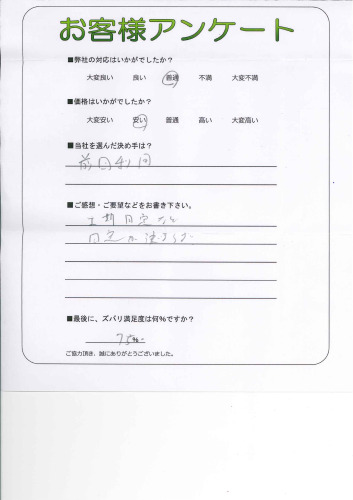 お客様アンケート
■弊社の対応はいかがでしたか?
大変良い 良い 普通 不満 大変不満
■価格はいかがでしたか?
大変安い 安い 普通 高い 大変高い
■当社を選んだ決め手は?
前回利用
■ご感想・ご要望などをお書き下さい。
土地
■最後に、ズバリ満足度は何%ですか?
75%
ご協力頂き、誠にありがとうございました。